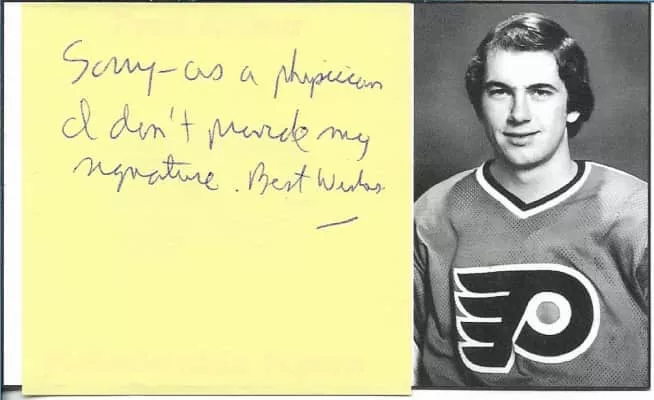 Sorry - as a physician
I don't provide my
signature. Best Wishes